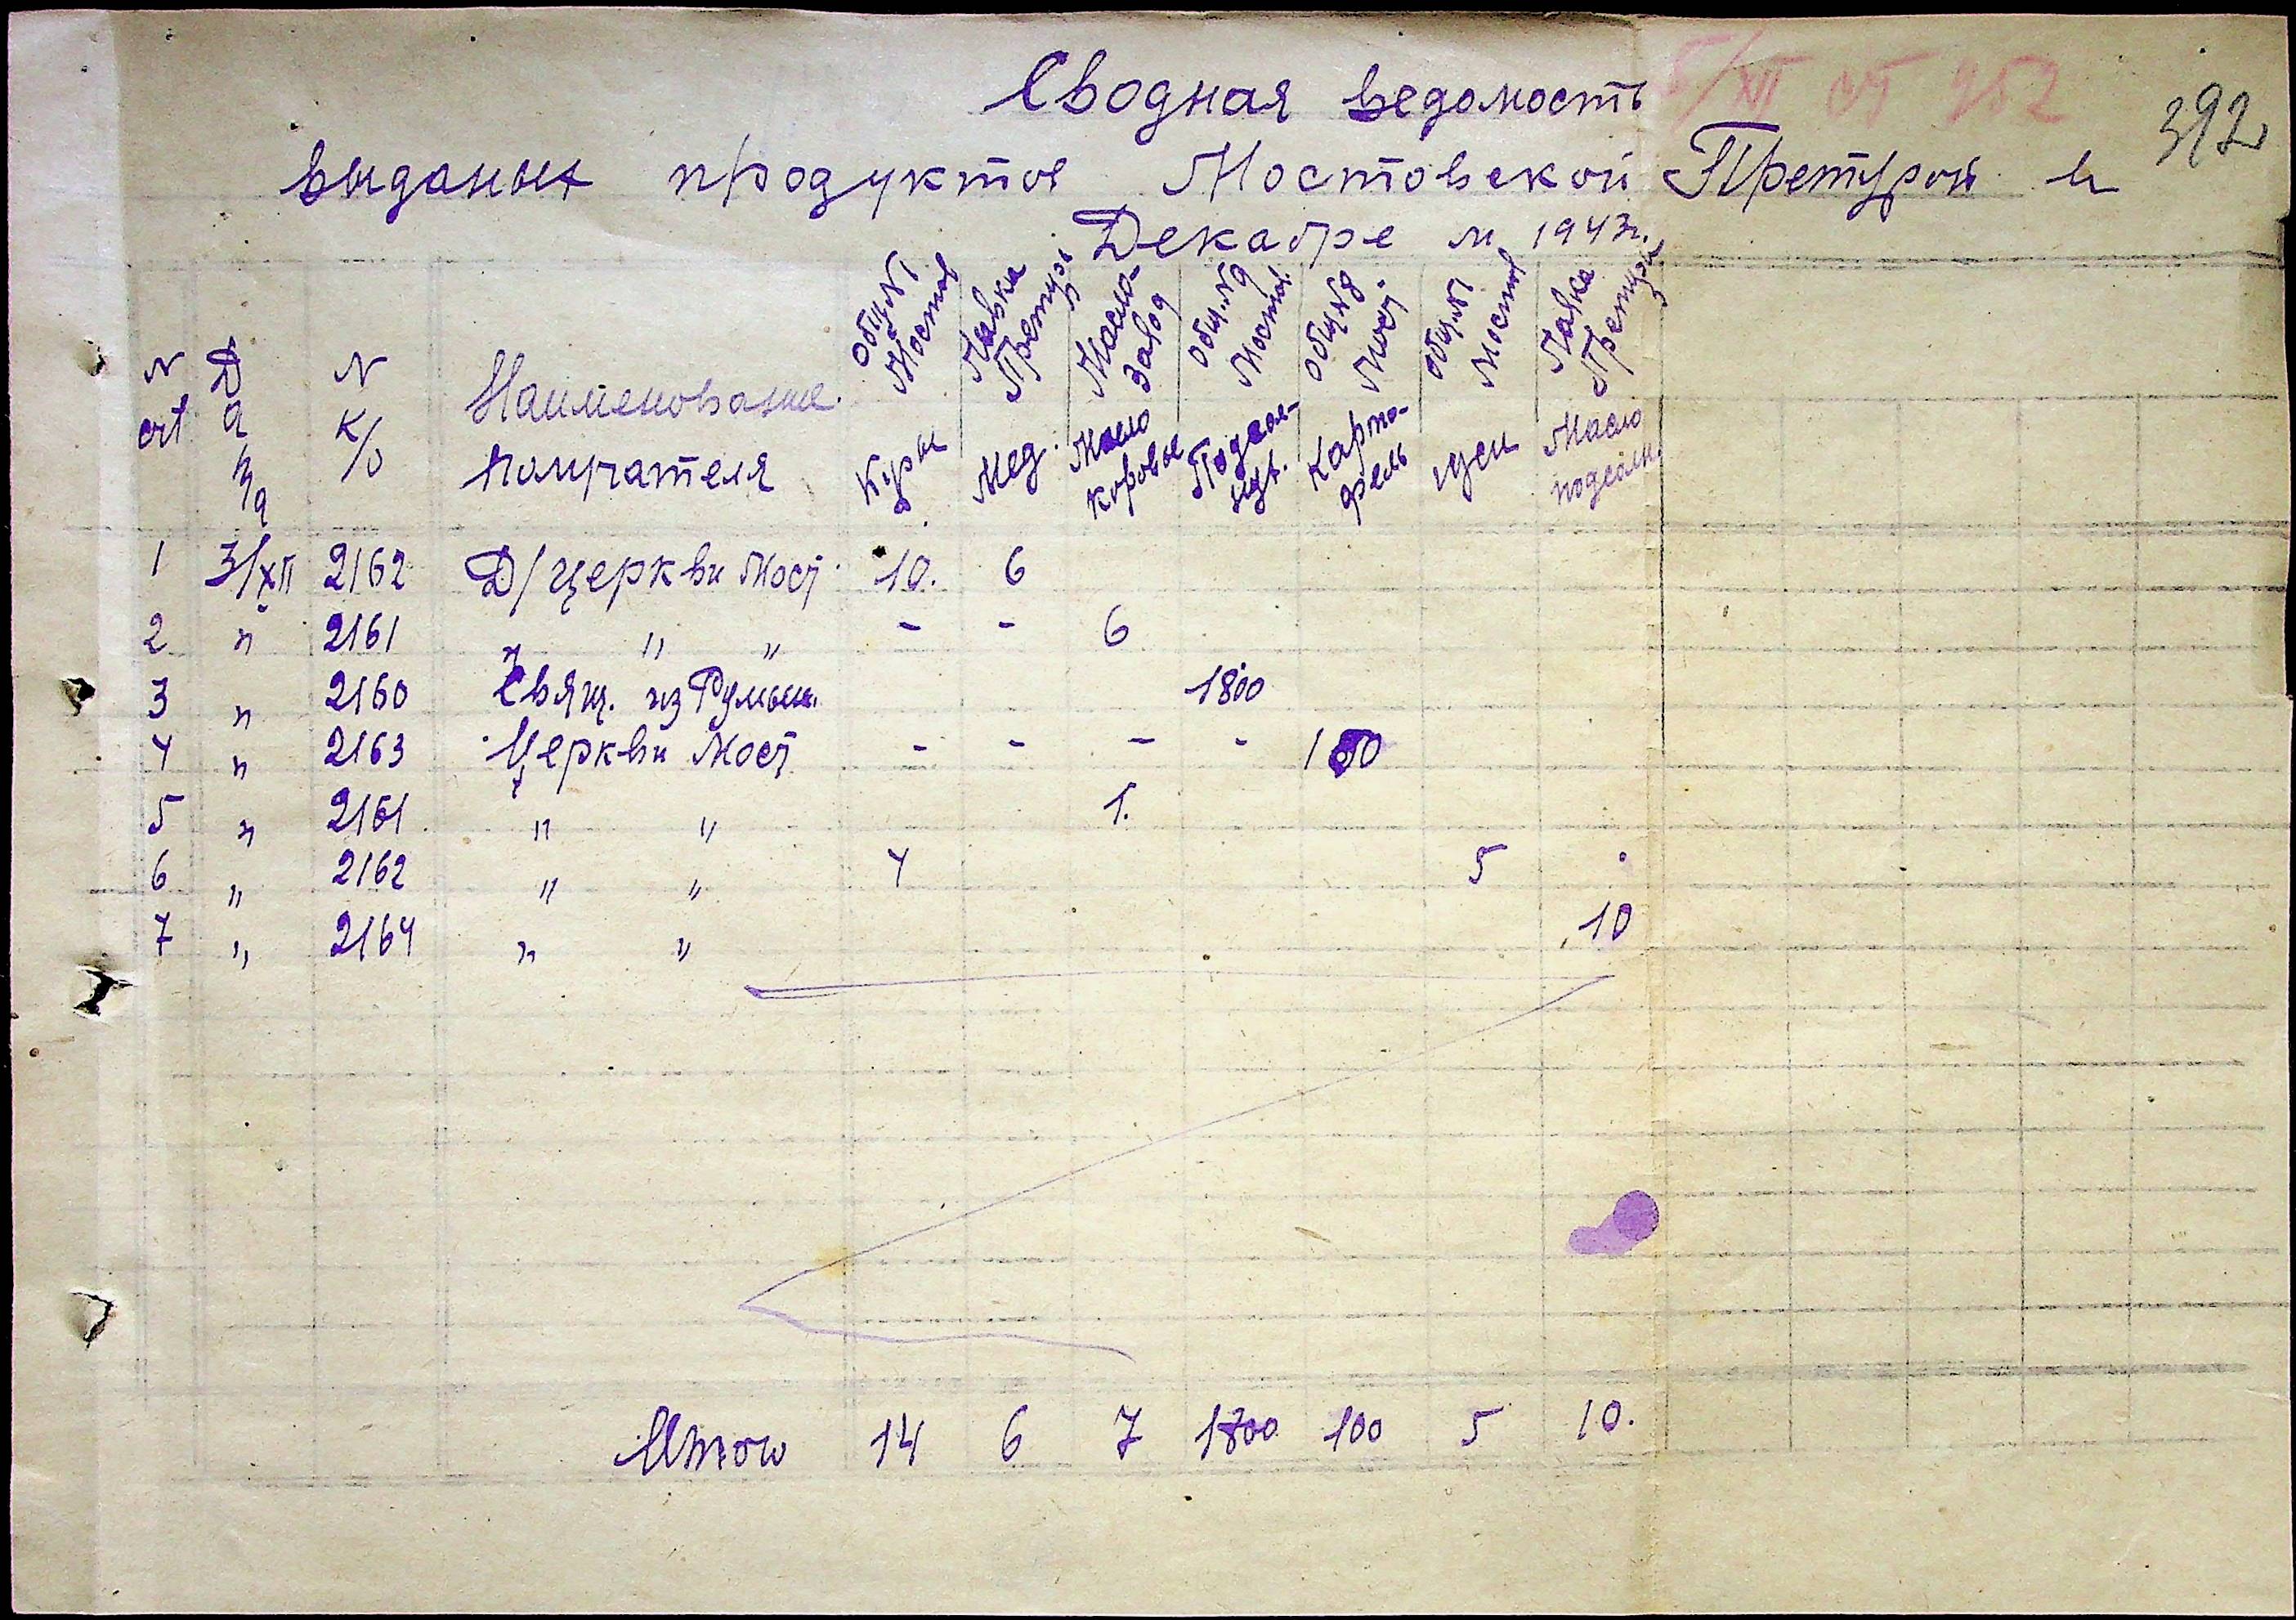 5/XII ст 952
392
Сводная ведомость
выданых продуктов Мостовской Претурой в
Декабре м 1943 г.
N ст Дата N к/о Наименование получателя
Общ. N1 Мостов Куры
Лавка Претуры Мед.
Масло-завод Масло коровье
Общ. N9 Мостов. Подсол-нух.
Общ N8 Мост. Карто-фель
Общ. N1 Мостов гуси
Лавка Претуры Масло подсолн.
1 3/XII 2162 Д/церкви Мост. 10. 6
2 " 2161 " " " - - 6
3 " 2160 Свящ. из Румын. 1800
4 " 2163 Церкви Мост - - - - 100
5 " 2161 " " 1.
6 " 2162 " " 4 5
7 " 2164 " " 10
Итого 14 6 7 1800 100 5 10.